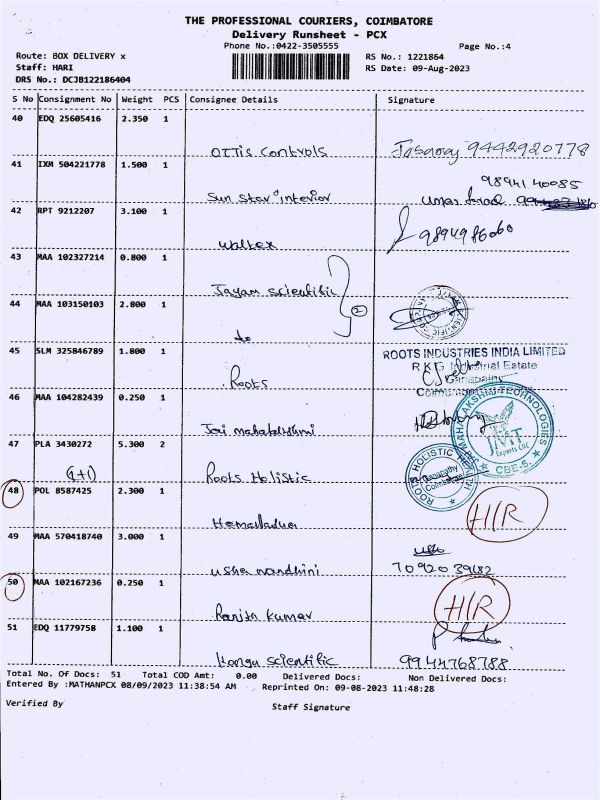 THE PROFESSIONAL COURIERS, COIMBATORE
Delivery Runsheet - PCX
Phone No.:0422-3505555
Page No.:4
Route: BOX DELIVERY x
RS No.: 1221864
Staff: HARI
RS Date: 09-Aug-2023
DRS No.: DCJB122186404
S No Consignment No Weight PCS Consignee Details Signature
40 EDQ 25605416 2.350 1
OTTis Controls 9442920778
41 IXM 504221778 1.500 1
9894140085
Sun Star interior
42 RPT 9212207 3.100 1
9894986060
43 MAA 102327214 0.800 1
Jayam scientific
44 MAA 103150103 2.800 1
2
to
45 SLM 325846789 1.800 1
ROOTS INDUSTRIES INDIA LIMITED
RKG Industrial Estate
Roots
Ganapathy
46 MAA 104282439 0.250 1
Jai mahalakshmi
MAHALAKSHMI TECHNOLOGIES
JMT
Experts CNC
CBE-5.
47 PLA 3430272 5.300 2
(1+1)
Roots Holistic
ROOTS HOLISTIC HEALTH
Ganapathy
Coimbatore
48 POL 8587425 2.300 1
H/R
49 MAA 570418740 3.000 1
usha nandhini
7092039682
50 MAA 102167236 0.250 1
H/R
Ranjith kumar
51 EDQ 11779758 1.100 1
Kongu scientific 9944768788
Total No. Of Docs: 51 Total COD Amt: 0.00 Delivered Docs: Non Delivered Docs:
Entered By :MATHANPCX 08/09/2023 11:38:54 AM Reprinted On: 09-08-2023 11:48:28
Verified By
Staff Signature